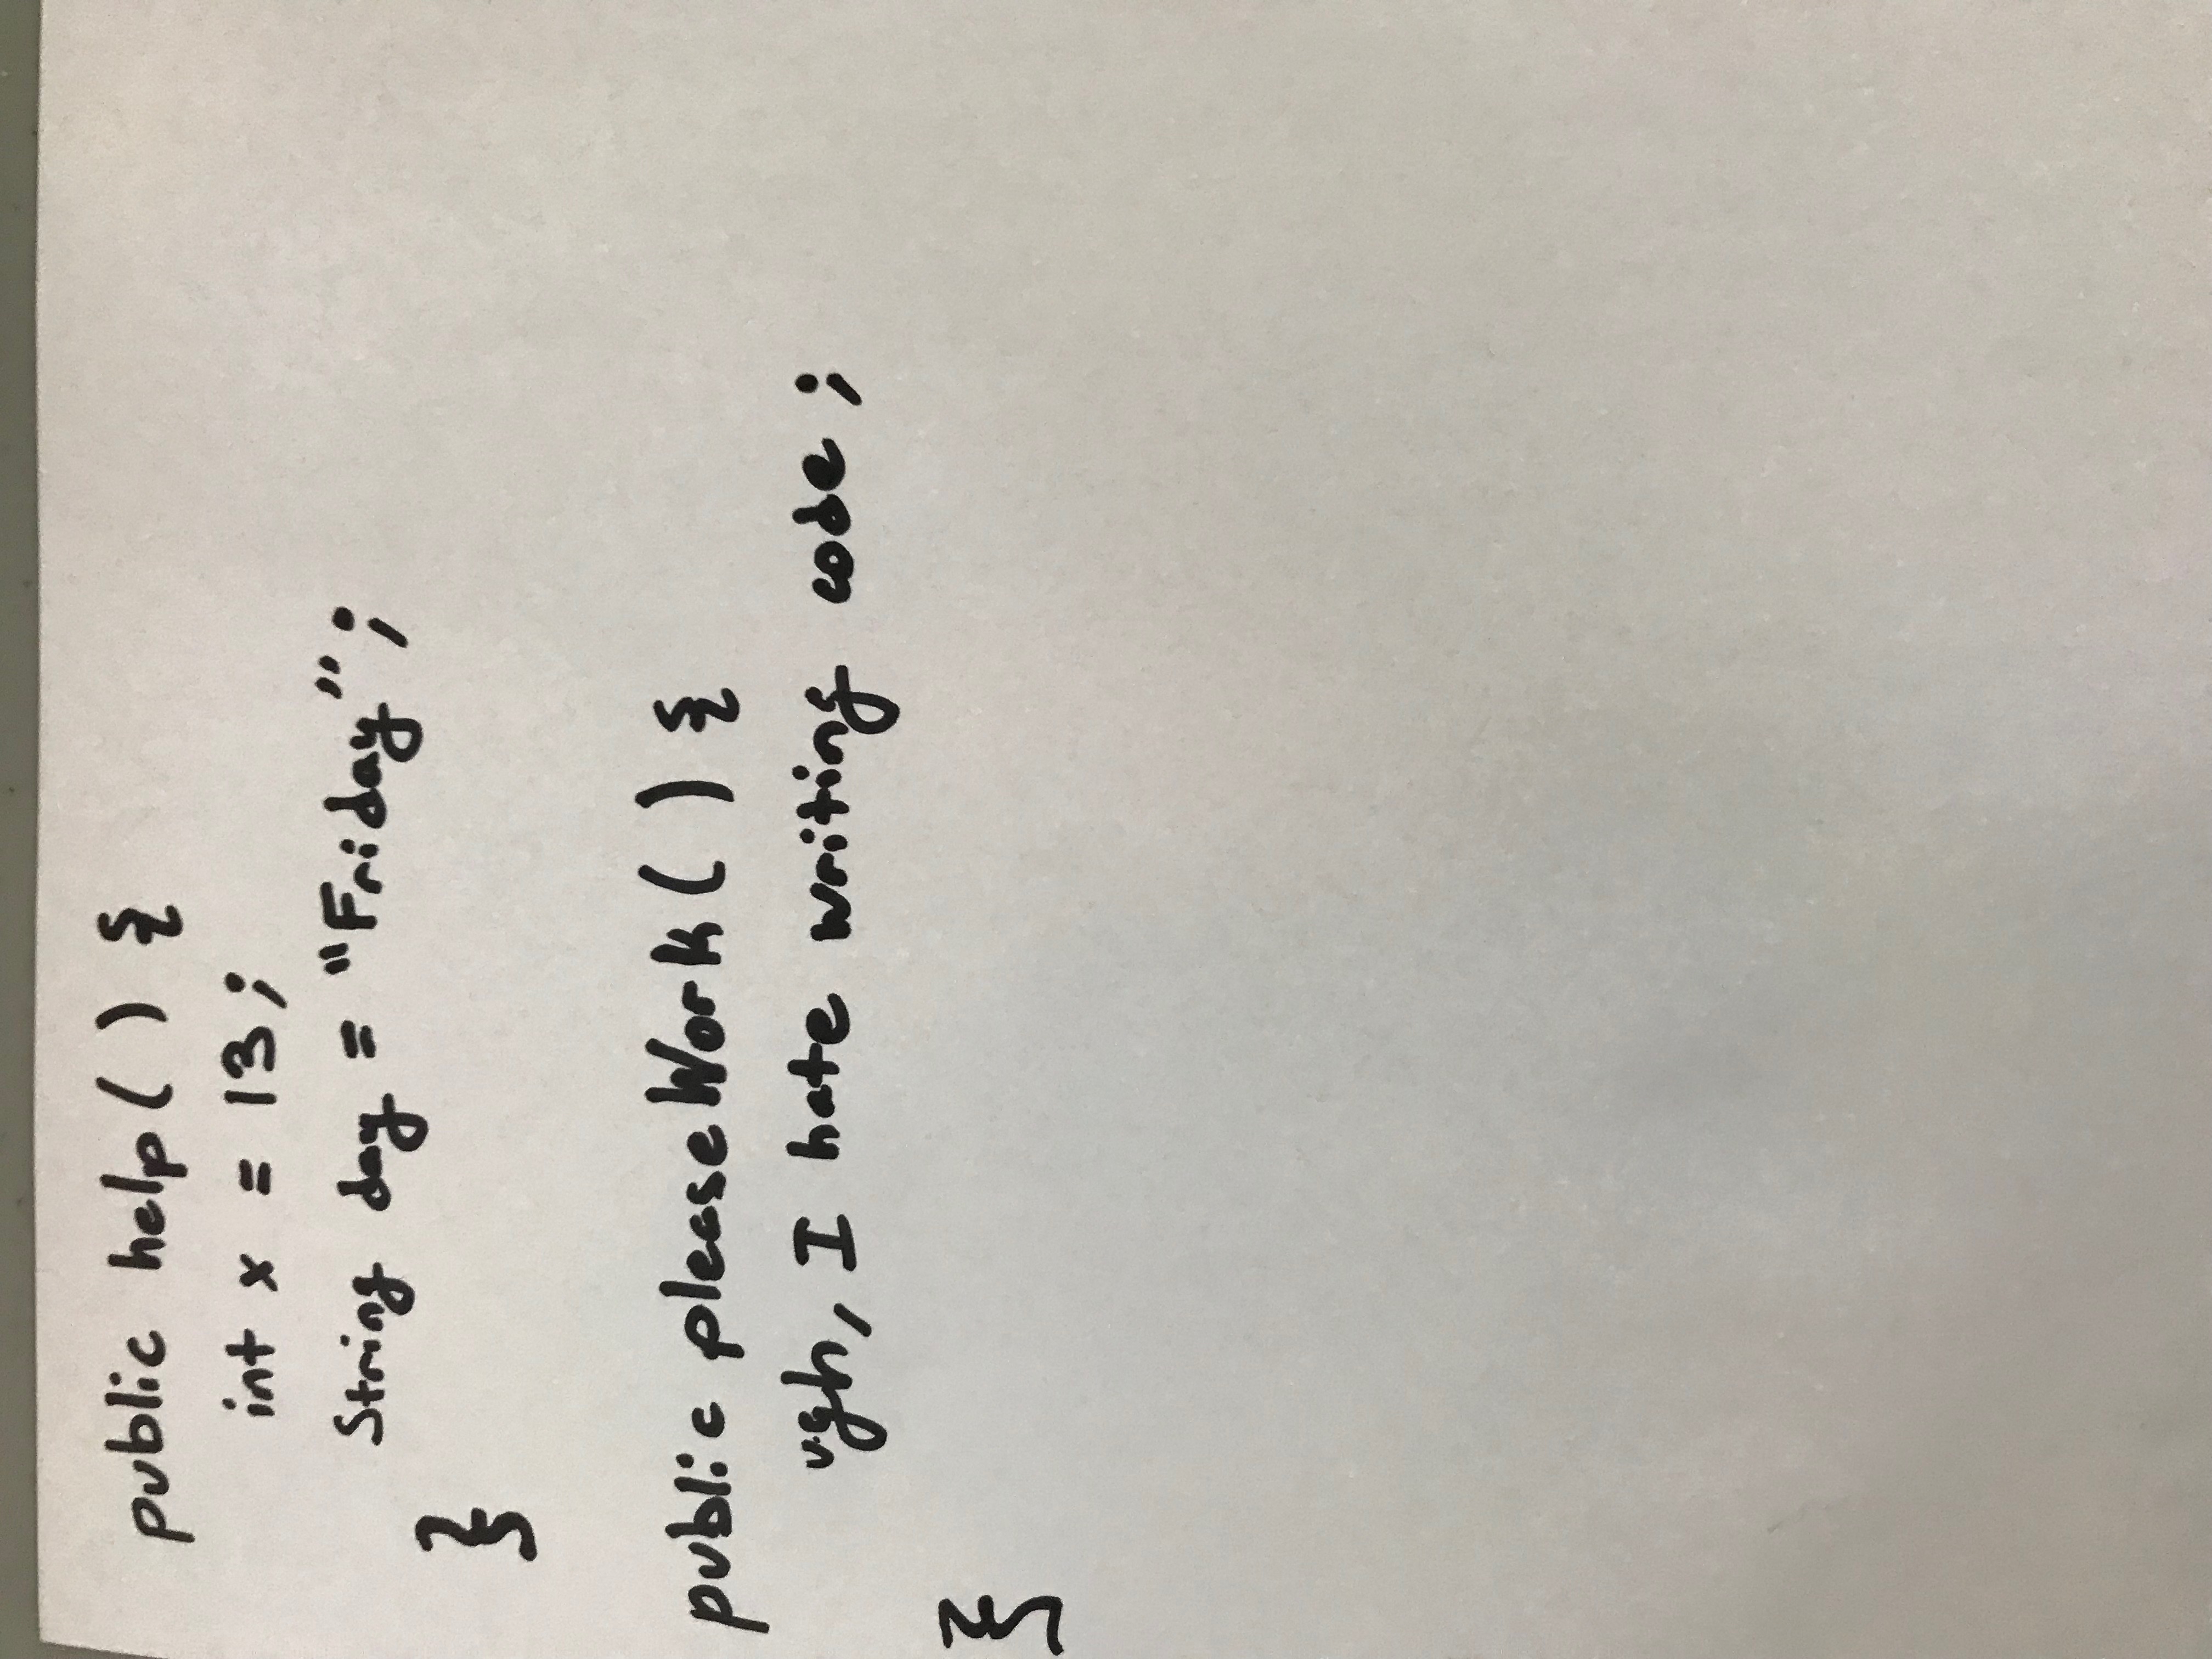 public help( ) {
int x = 13;
String day = "Friday";
}
public pleaseWork( ) {
ugh, I hate writing code;
}